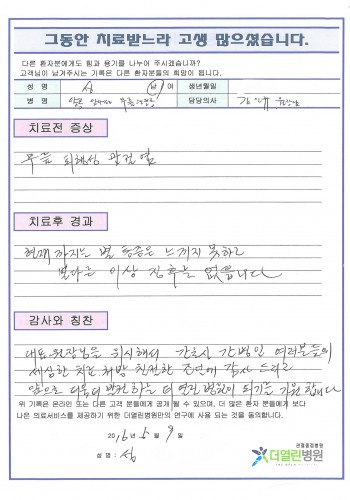 그동안 치료받느라 고생 많으셨습니다.
다른 환자분에게도 힘과 용기를 나누어 주시겠습니까?
고객님이 남겨주시는 기록은 다른 환자분들의 희망이 됩니다.
성 명 심 남 여 생년월일
병 명 양쪽 무릎 담당의사 김
치료전 증상
무릎 퇴행성 관절염
치료후 경과
현재 까지는 별 통증은 느끼지 못하고
별다른 이상 징후는 없읍니다
감사와 칭찬
대표원장님을 위시해서 간호사 간병인 여러분들의
세심한 치료 처방 친절한 조언에 감사 드리고
앞으로 더욱더 발전하는 더 열린 병원이 되기를 기원합니다
위 기록은 온라인 또는 다른 고객 분들에게 공개 될 수 있으며, 더 많은 환자 분들에게 보다
나은 의료서비스를 제공하기 위한 더열린병원만의 연구에 사용 되는 것을 동의합니다.
2016년 5월 9일
성 명 : 심
관절중점병원
더열린병원